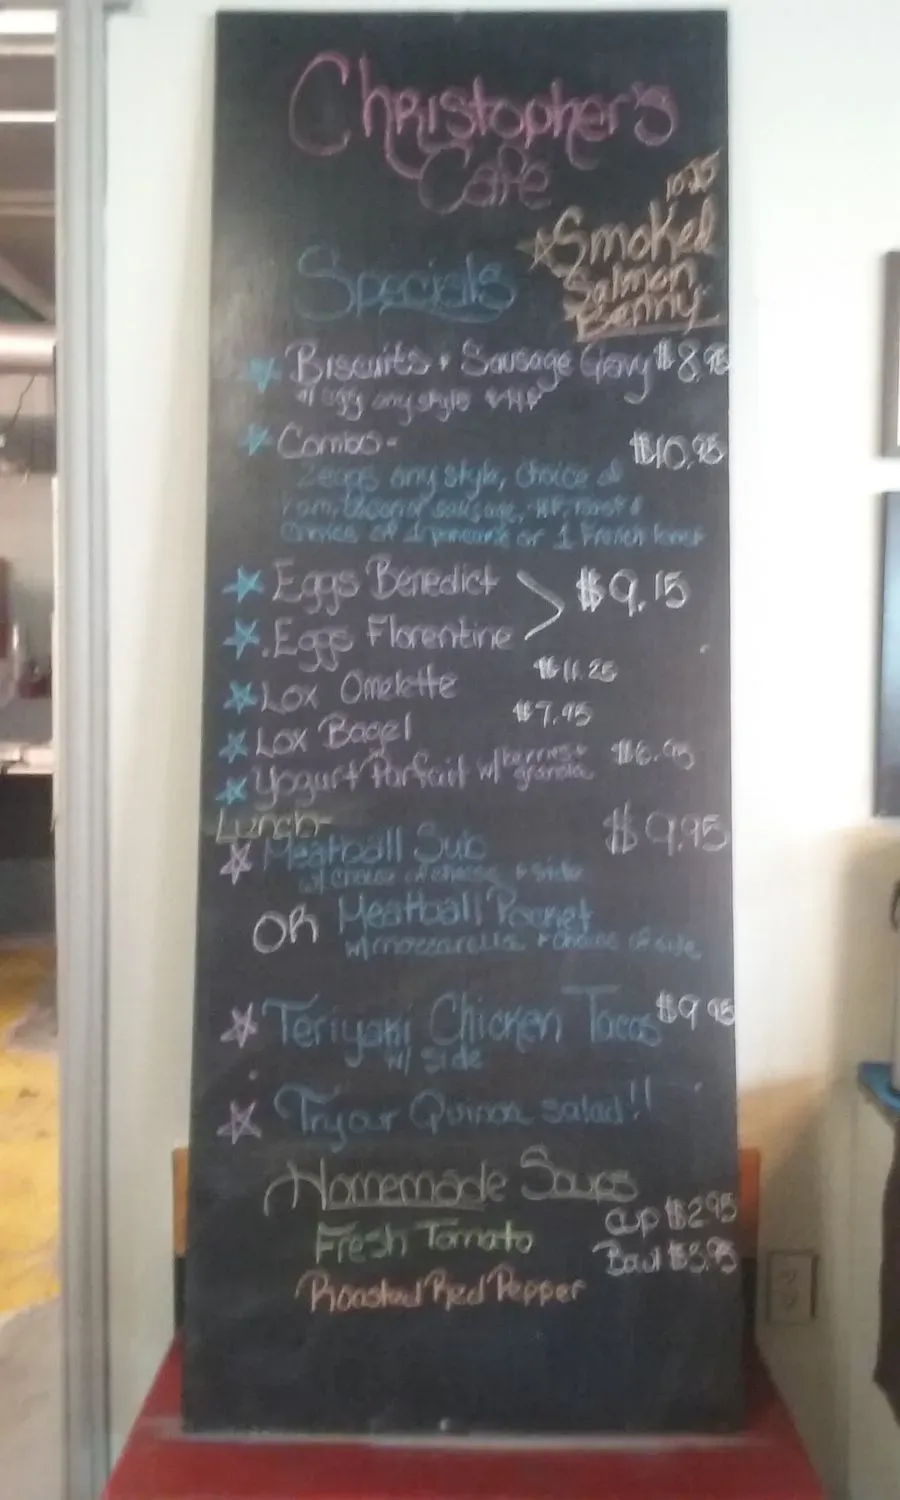 Christopher's
Cafe
10.25
Smoked
Salmon
Benny
Specials
Biscuits + Sausage Gravy $8.95
w/ egg any style + HF
Combo- $10.95
2 eggs any style, choice of
ham, bacon or sausage, HF, toast &
choice of 1 pancake or 1 French toast
Eggs Benedict $9.15
Eggs Florentine
Lox Omelette $11.25
Lox Bagel $7.95
Yogurt Parfait w/ berries + granola $6.95
Lunch-
Meatball Sub $9.95
w/ choice of cheese + side
OR Meatball Pocket
w/ moccarella + choice of side
Teriyaki Chicken Tacos $9.95
w/ side
Try our Quinoa salad!!
Homemade Soups
cup $2.95
Fresh Tomato
Bowl $3.95
Roasted Red Pepper